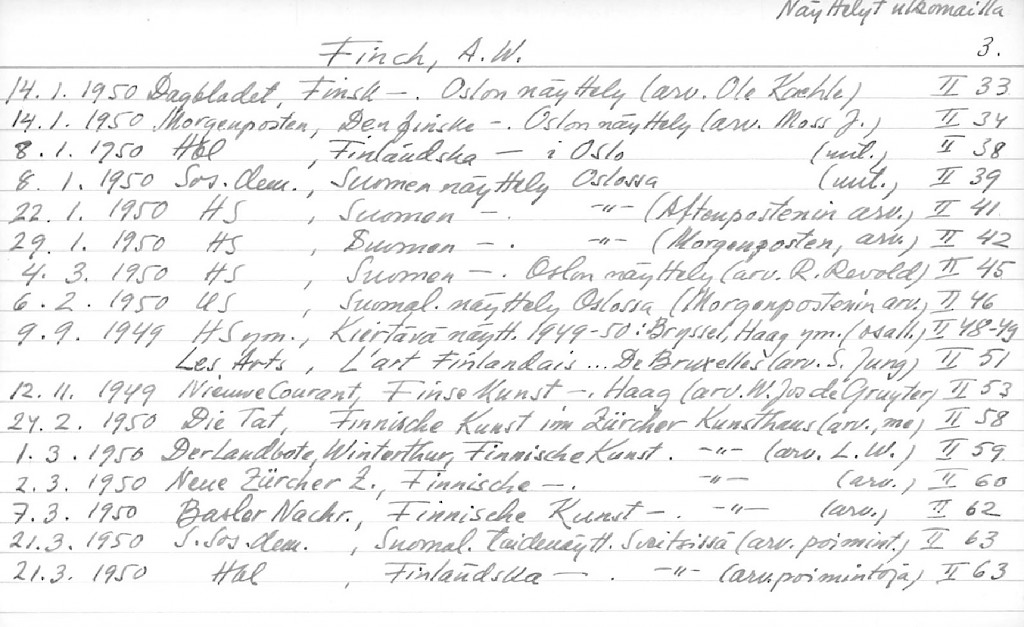 Näyttelyt ulkomailla
3.
Finch, A.W.
14.1.1950 Dagbladet, Finsk —. Oslon näyttely (arv. Ole Kæhle) II 33
14.1.1950 Morgenposten, Den finske —. Oslon näyttely (arv. Moss J.) II 34
8.1.1950 Hbl , Finländska — i Oslo (uut.) II 38
8.1.1950 Sos.dem., Suomen näyttely Oslossa (uut.) II 39
22.1.1950 HS , Suomen —. -"- (Aftenpostenin arv.) II 41
29.1.1950 HS , Suomen —. -"- (Morgenposten, arv.) II 42
4.3.1950 HS , Suomen —. Oslon näyttely (arv. R. Revold) II 45
6.2.1950 US , Suomal. näyttely Oslossa (Morgenpostenin arv.) II 46
9.9.1949 HS ym., Kiertävä näytt. 1949-50: Bryssel, Haag ym. (osall.) II 48-49
Les Arts , L'art Finlandais ... De Bruxelles (arv. S. Jung) II 51
12.11.1949 Nieuwe Courant, Finse Kunst —. Haag (arv. W. Jos de Gruyter) II 53
24.2.1950 Die Tat, Finnische Kunst im Zürcher Kunsthaus (arv., me) II 58
1.3.1950 Der Landbote, Winterthur, Finnische Kunst. -"- (arv. L.W.) II 59
2.3.1950 Neue Zürcher Z., Finnische —. -"- (arv.) II 60
7.3.1950 Basler Nachr., Finnische Kunst —. -"- (arv.) II 62
21.3.1950 S.Sos.dem. , Suomal. taidenäytt. Sveitsissä (arv. poimint.) II 63
21.3.1950 Hbl , Finländska —. -"- (arv. poimintoja) II 63